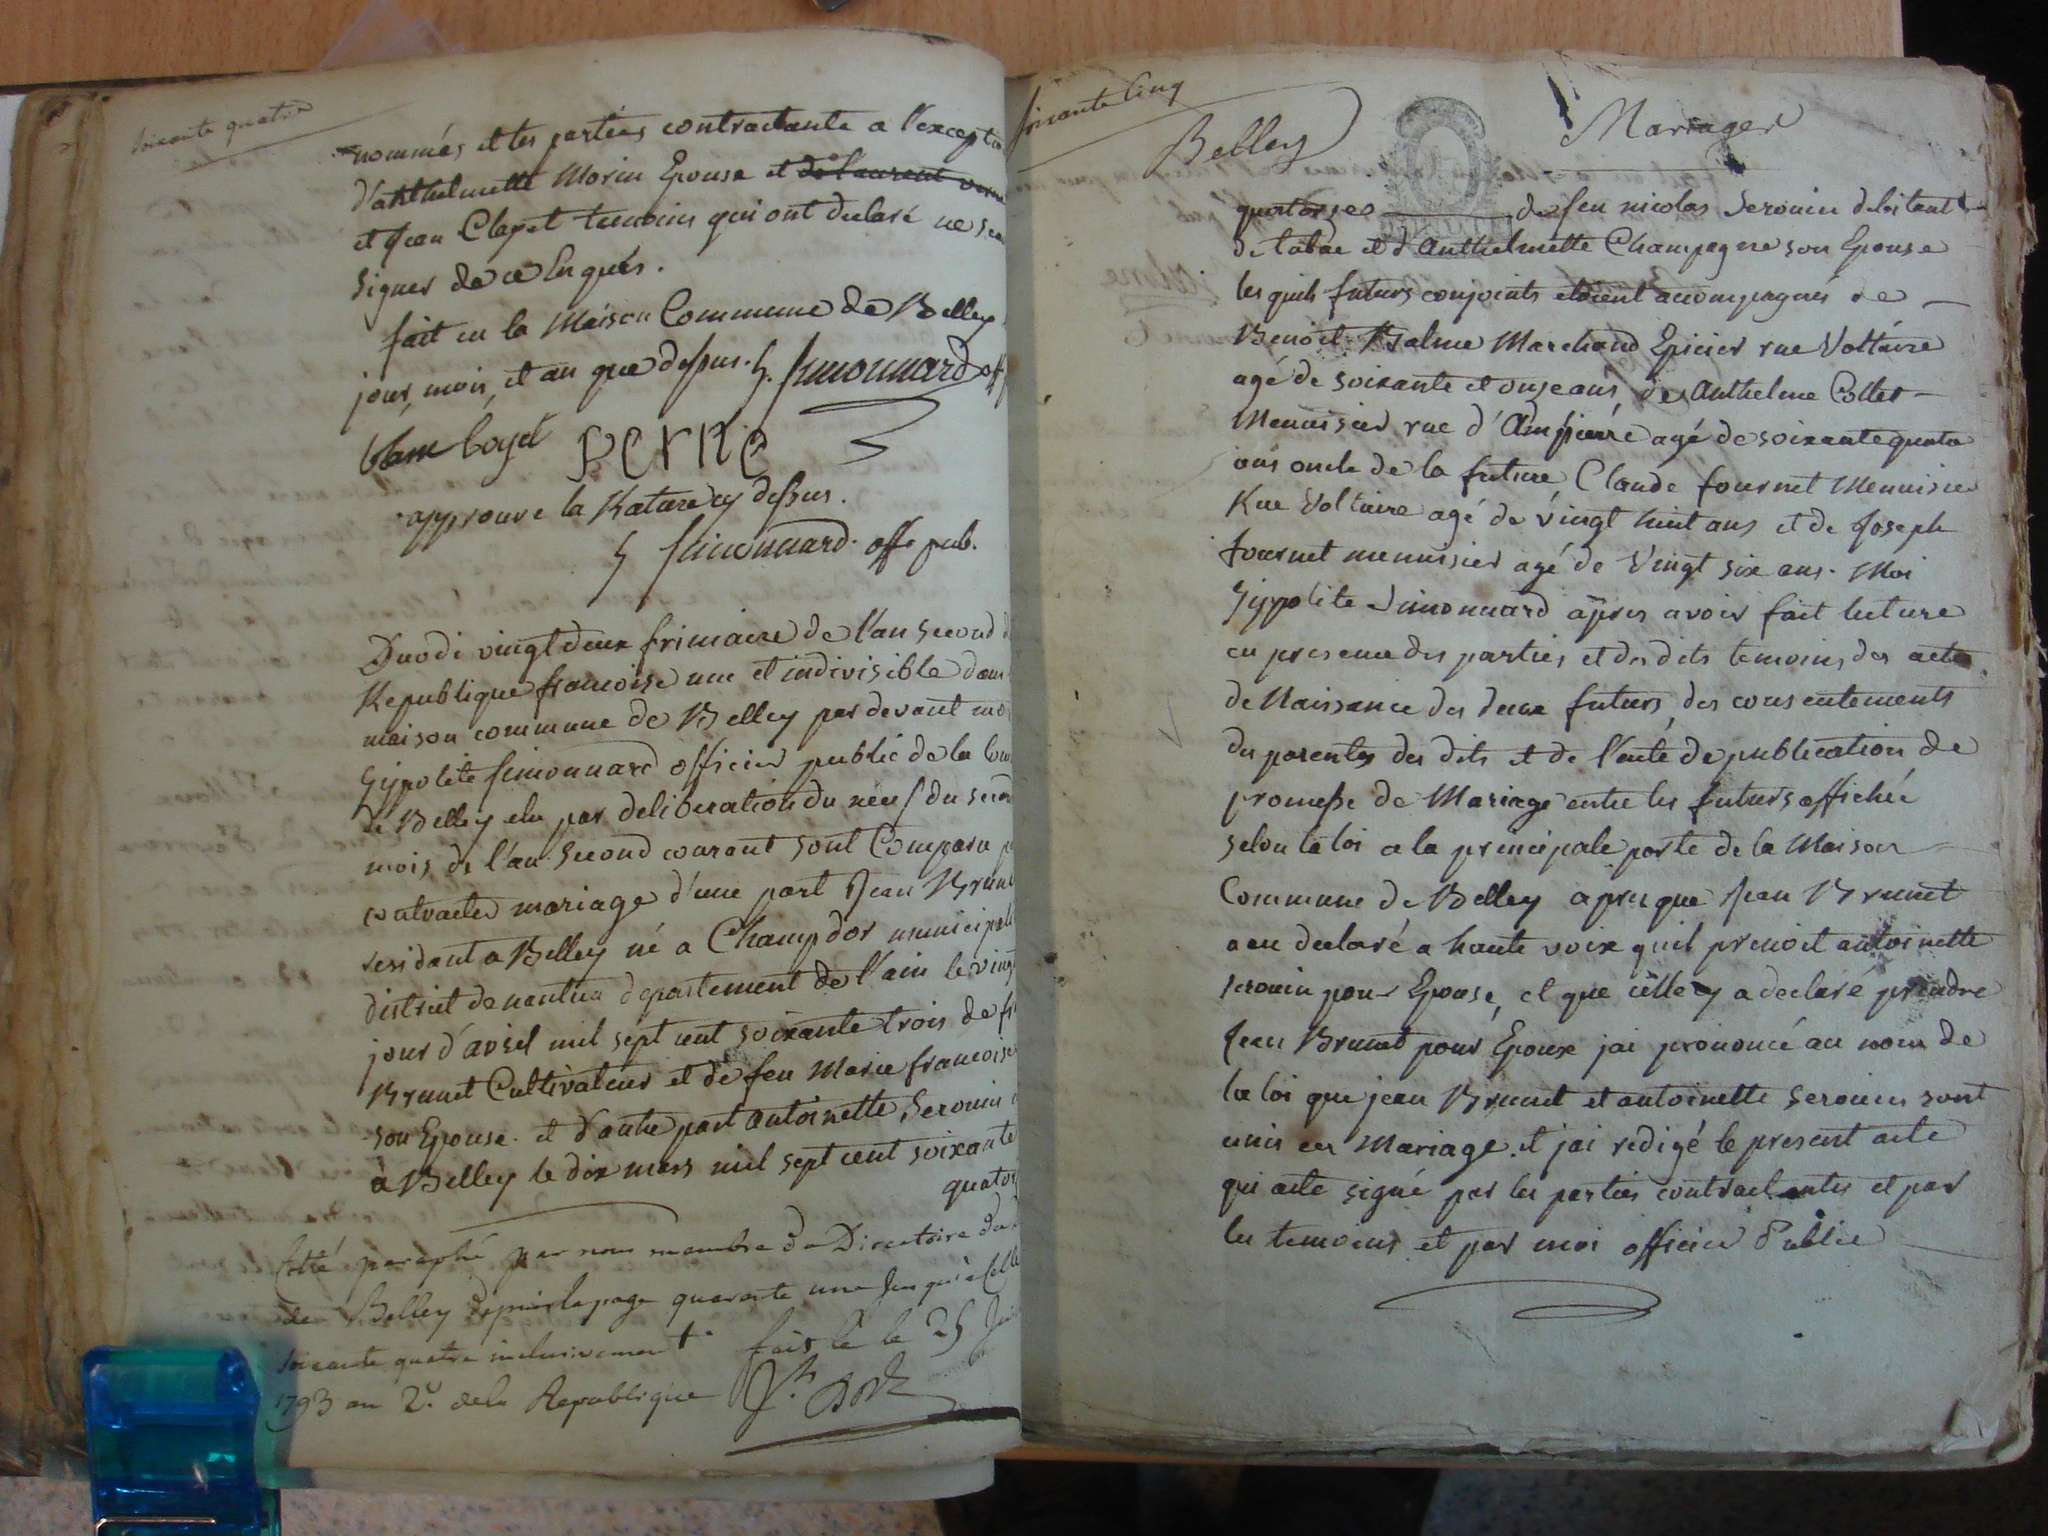 soixante quatre
nommés et les parties contractante a l'excepti
d'anthelmette Morin Epouse et de laurent
et Jean Clapet temoins qui ont declaré ne
signer de ce Enquis.
fait en la Maison Commune de Belley
jour, mois, et an que dessus. h. simonnard off
loyet perne
approuve la Rature cy dessus.
h simonnard. off. pub.
Duodi vingt deux frimaire de l'an second d
Republique francoise une et indivisible dans
maison commune de Belley par devant moi
hippolite simonnard officier public de la Com
de Belley elu par deliberation du neuf du secon
mois de l'an second courant sont Comparu p
contracter mariage d'une part Jean Brunet
residant a Belley né a Champdor municipali
district de nantua departement de l'ain le vingt
jour d'avril mil sept cent soixante trois de
Brunet Cultivateur et de feu Marie francoise
son Epouse. et d'autre part antoinette Seronin
à Belley le dix mars mil sept cent soixante
quator
Cotté paraphé par nous membre du Directoire du
de Belley depuis la page quarante une jusqu'à celle
soixante quatre inclusivement. fait le 25
1793 an 2e. de la Republique
soixante Cinq
Belley
Mariages
quatorse de feu nicolas Seronin debitant
de tabac et d'Anthelmette Champagne son Epouse
les quels futurs conjoints etoient accompagnés de
Benoit Balme Marchand Epicier rue Voltaire
agé de soixante et onze ans, de Anthelme Collet
Menuisier rue d'Ampierre agé de soixante quatre
ans oncle de la future Claude fournet Menuisier
Rue Voltaire agé de vingt huit ans et de Joseph
fournet menuisier agé de Vingt six ans. Moi
hippolite simonnard apres avoir fait lecture
en presence des parties et des dits temoins, des actes
de Naissance des deux futurs, des consentements
des parents des dits et de l'acte de publication de
promesse de Mariage entre les futurs affichée
selon la loi a la principale porte de la Maison
Commune de Belley apres que Jean Brunet
a eu declaré a haute voix quil prenoit antoinette
seronin pour Epouse, et que icelle y a declaré prendre
Jean Brunet pour Epoux jai prononcé au nom de
la loi que jean Brunet et antoinette Seronin sont
unis en Mariage. et jai redigé le present acte
qui a eté signé par les parties contractantes et par
les temoins et par moi officier Public